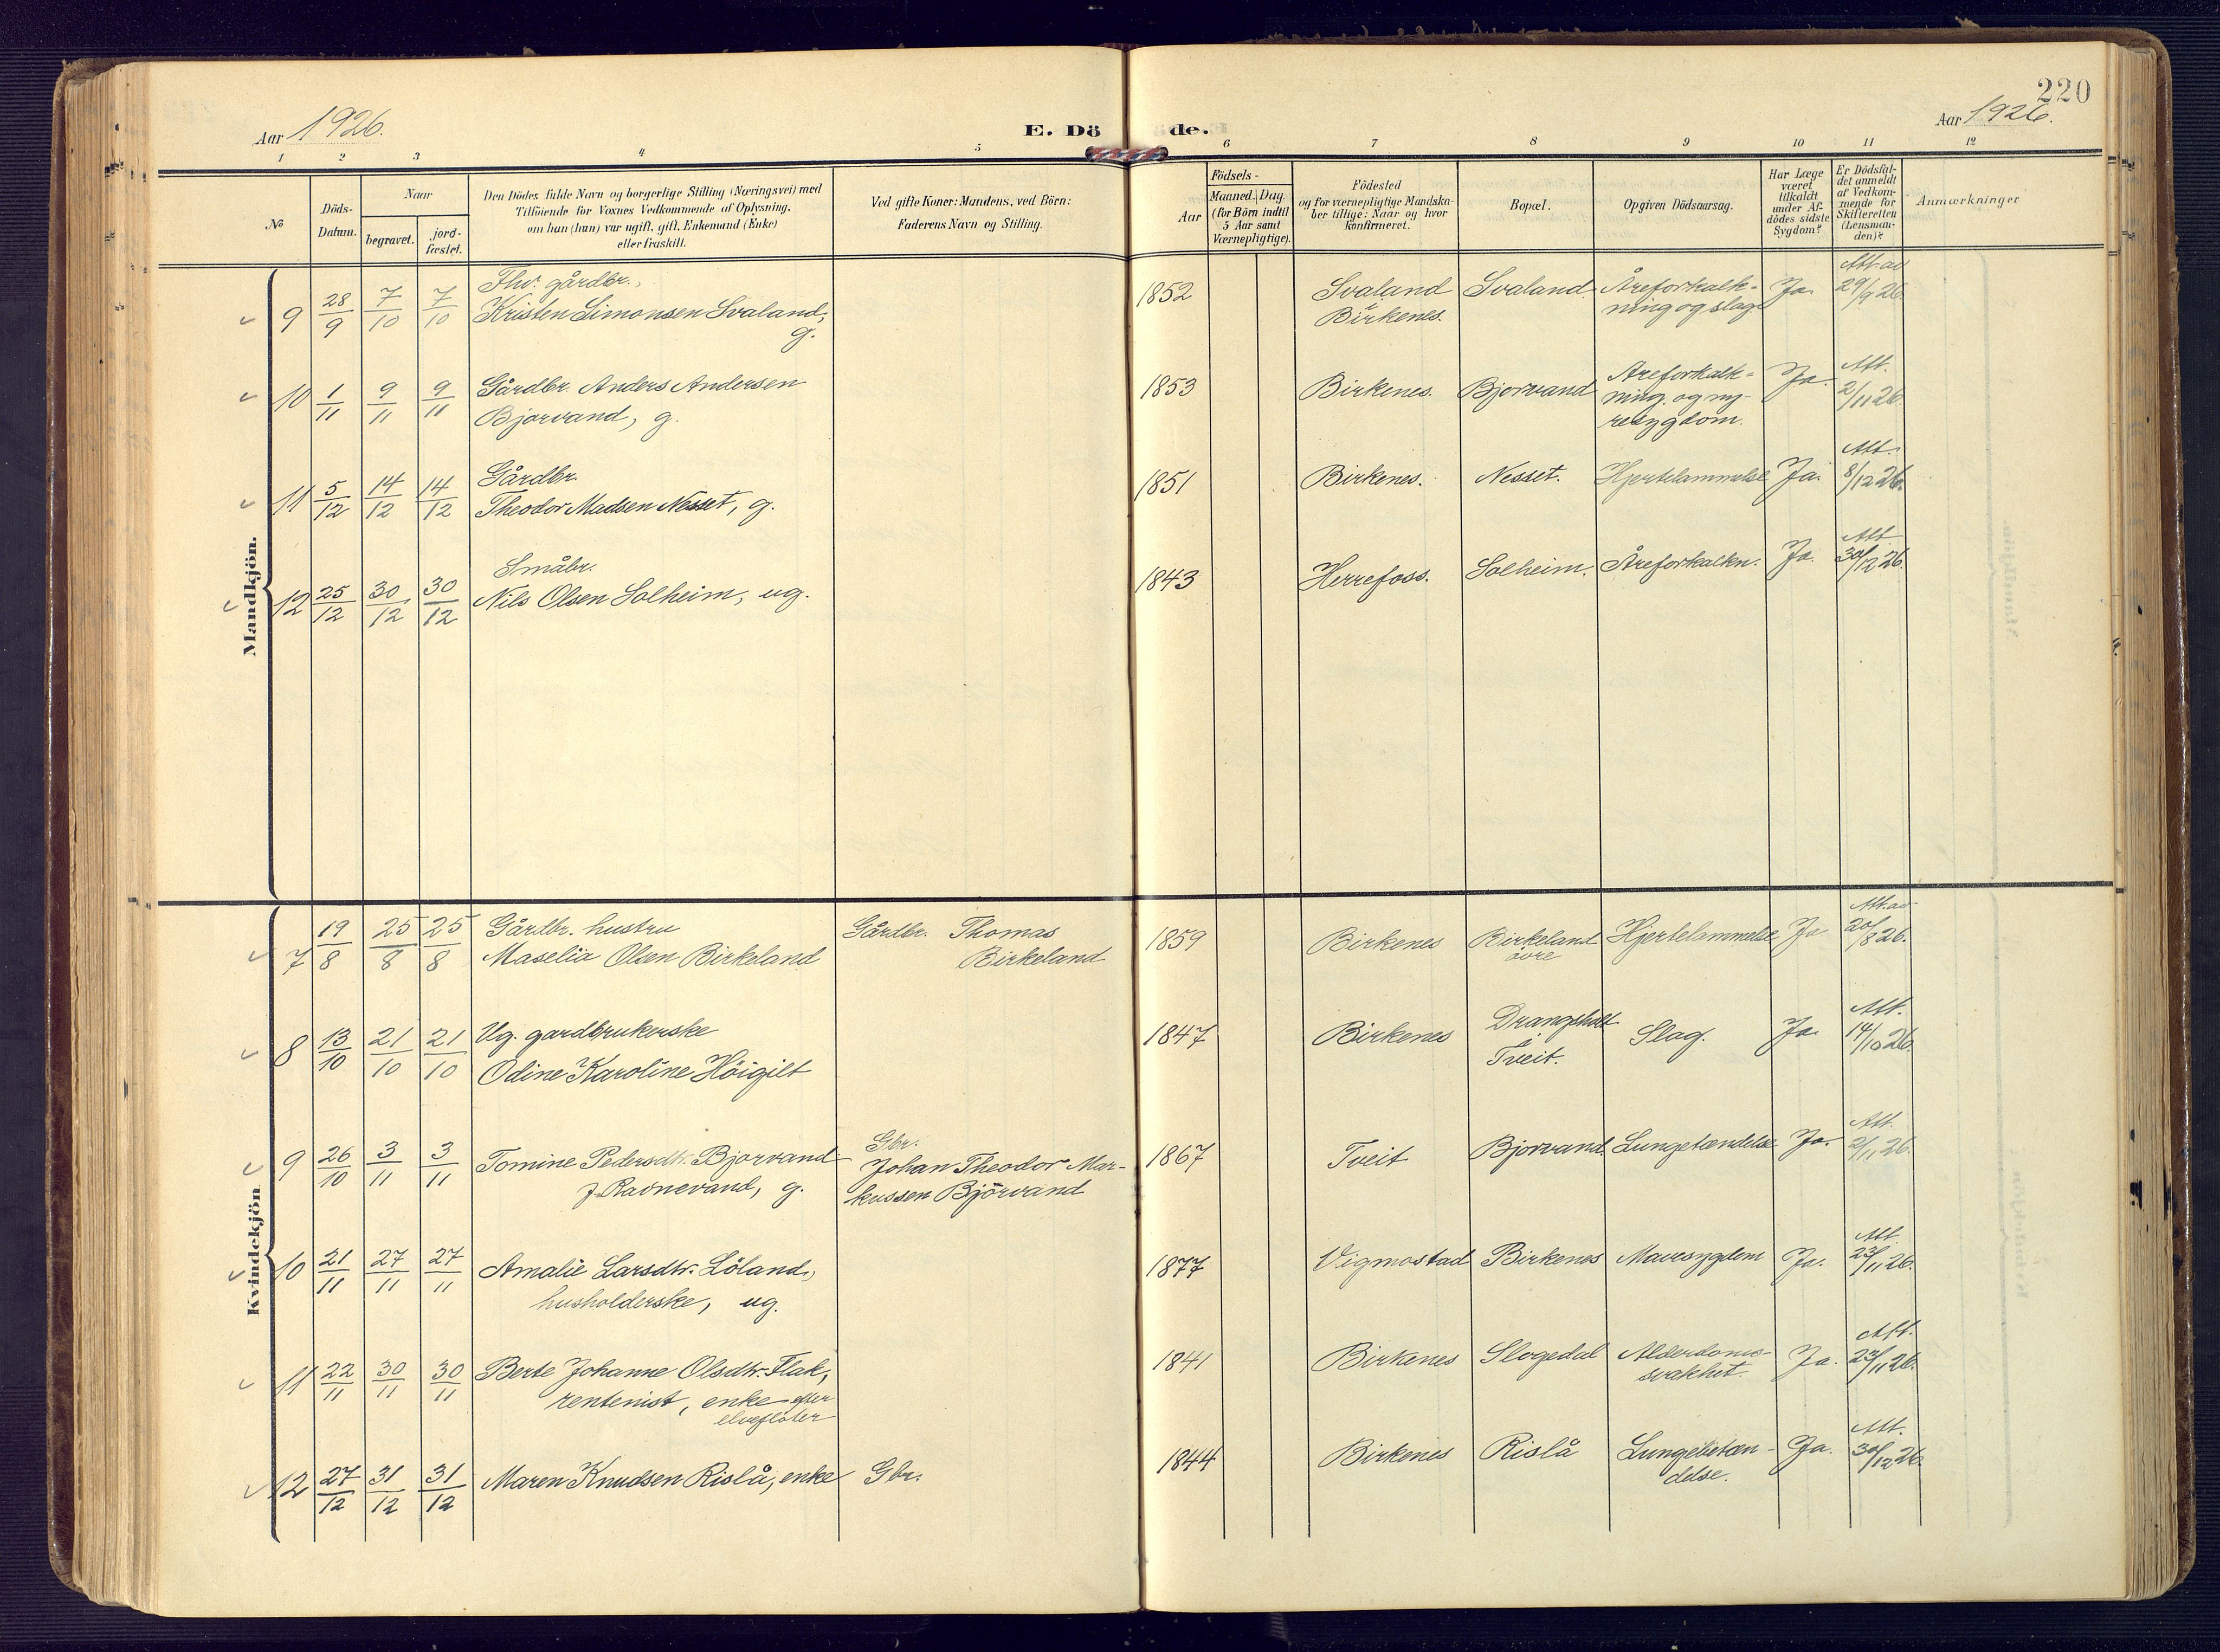 220
Aar 1926.
E. Dö de.
Aar 1926.
1 2 3 4 5 6 7 8 9 10 11 12
No
Döds-
Datum.
Naar
begravet.
jord-
fæstet.
Den Dödes fulde Navn og borgerlige Stilling (Næringsvei) med
Tilföiende for Voxnes Vedkommende af Oplysning,
om han (hun) var ugift, gift, Enkemand (Enke)
eller fraskilt.
Ved gifte Koner: Mandens, ved Börn:
Faderens Navn og Stilling.
Födsels-
Aar
Maaned. Dag.
(for Börn indtil
5 Aar samt
Værnepligtige).
Födested
og for værnepligtige Mandska-
ber tillige: Naar og hvor
konfirmeret.
Bopæl.
Opgiven Dödsaarsag.
Har Læge
været
tilkaldt
under Af-
dödes sidste
Sygdom?
Er Dödsfal-
det anmeldt
af Vedkom-
mende for
Skifteretten
(Lensman-
den)?
Anmærkninger
Mandkjön.
9 28/9 7/10 7/10 Fhv. gårdbr.,
Kristen Simonsen Svaland,
g.
1852 Svaland
Birkenes.
Svaland.
Åreforkalk-
ning og slag.
Ja.
Att. av
29/9 26.
10 1/11 9/11 9/11 Gårdbr. Anders Andersen
Bjorvand, g.
1853 Birkenes. Bjorvand
Åreforkalk-
ning og ny-
resygdom.
Ja.
Att.
2/11 26.
11 5/12 14/12 14/12 Gårdbr.
Theodor Madsen Nesset, g.
1851 Birkenes. Nesset. Hjertelammelse Ja.
Att.
8/12 26.
12 25/12 30/12 30/12 Småbr.
Nils Olsen Solheim, ug.
1843 Herrefoss. Solheim. Åreforkalkn. Ja.
Att.
30/12 26.
Kvindekjön
7 19/8 25/8 25/8 Gårdbr. hustru
Maselia Olsen Birkeland
Gårdbr. Thomas
Birkeland
1859 Birkenes Birkeland
övre
Hjertelammelse Ja
Att. av
20/8 26.
8 13/10 21/10 21/10 Ug. gardbrukerske
Odine Karoline Höigilt
1847 Birkenes Drangsholt
i
Tveit.
Slag. Ja.
Att.
14/10 26.
9 26/10 3/11 3/11 Tomine Pedersdtr. Bjorvand
f. Ravnevand, g.
Gbr.
Johan Theodor Mar-
kussen Björvand
1867 Tveit Bjorvand. Lungetændelse Ja.
Att.
2/11 26.
10 21/11 27/11 27/11 Amalie Larsdtr. Löland,
husholderske, ug.
1877 Vigmostad Birkenes Mavesygdom Ja.
Att.
23/11 26.
11 22/11 30/11 30/11 Berte Johanne Olsdtr. Flak,
rentenist, enke efter
elvefløter
1841 Birkenes Slogedal Alderdoms-
svakhet.
Ja.
Att.
23/11 26.
12 27/12 31/12 31/12 Maren Knudsen Rislå, enke Gbr.
1844 Birkenes Rislå Lungebetæn-
delse.
Ja.
Att.
30/12 26.